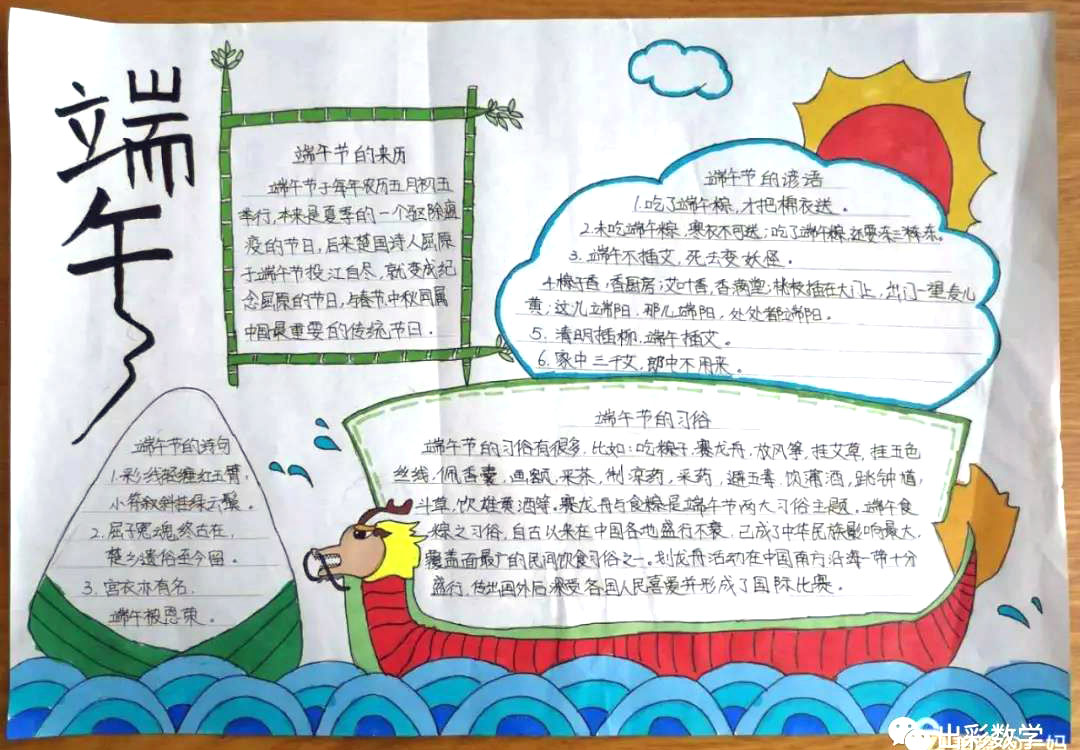 端午
端午节的来历
端午节于每年农历五月初五
举行,本来是夏季的一个驱除瘟
疫的节日,后来楚国诗人屈原
于端午节投江自尽,就变成纪
念屈原的节日,与春节中秋同属
中国最重要的传统节日.
端午节的谚语
1.吃了端午粽,才把棉衣送。
2.未吃端午粽,寒衣不可送;吃了端午粽,还要冻三冻。
3.端午不插艾,死去变妖怪。
4.粽子香,香厨房;艾叶香,香满堂;桃枝插在大门上,出门一望麦儿
黄;这儿端阳,那儿端阳,处处都端阳。
5.清明插柳,端午插艾。
6.家中三年艾,郎中不用来。
端午节的诗句
1.彩线轻缠红玉臂,
小符斜挂绿云鬟。
2.屈子冤魂终古在,
楚乡遗俗至今留。
3.宫衣亦有名,
端午被恩荣。
端午节的习俗
端午节的习俗有很多,比如:吃粽子,赛龙舟,放风筝,挂艾草,挂五色
丝线,佩香囊,画额,采茶,制凉药,采药,避五毒,饮蒲酒,跳钟馗,
斗草,饮雄黄酒等。赛龙舟与食粽是端午节两大习俗主题。端午食
粽之习俗,自古以来在中国各地盛行不衰,已成了中华民族影响最大,
覆盖面最广的民间饮食习俗之一。划龙舟活动在中国南方沿海一带十分
盛行,传出国外后深受各国人民喜爱并形成了国际比赛。
出彩数学